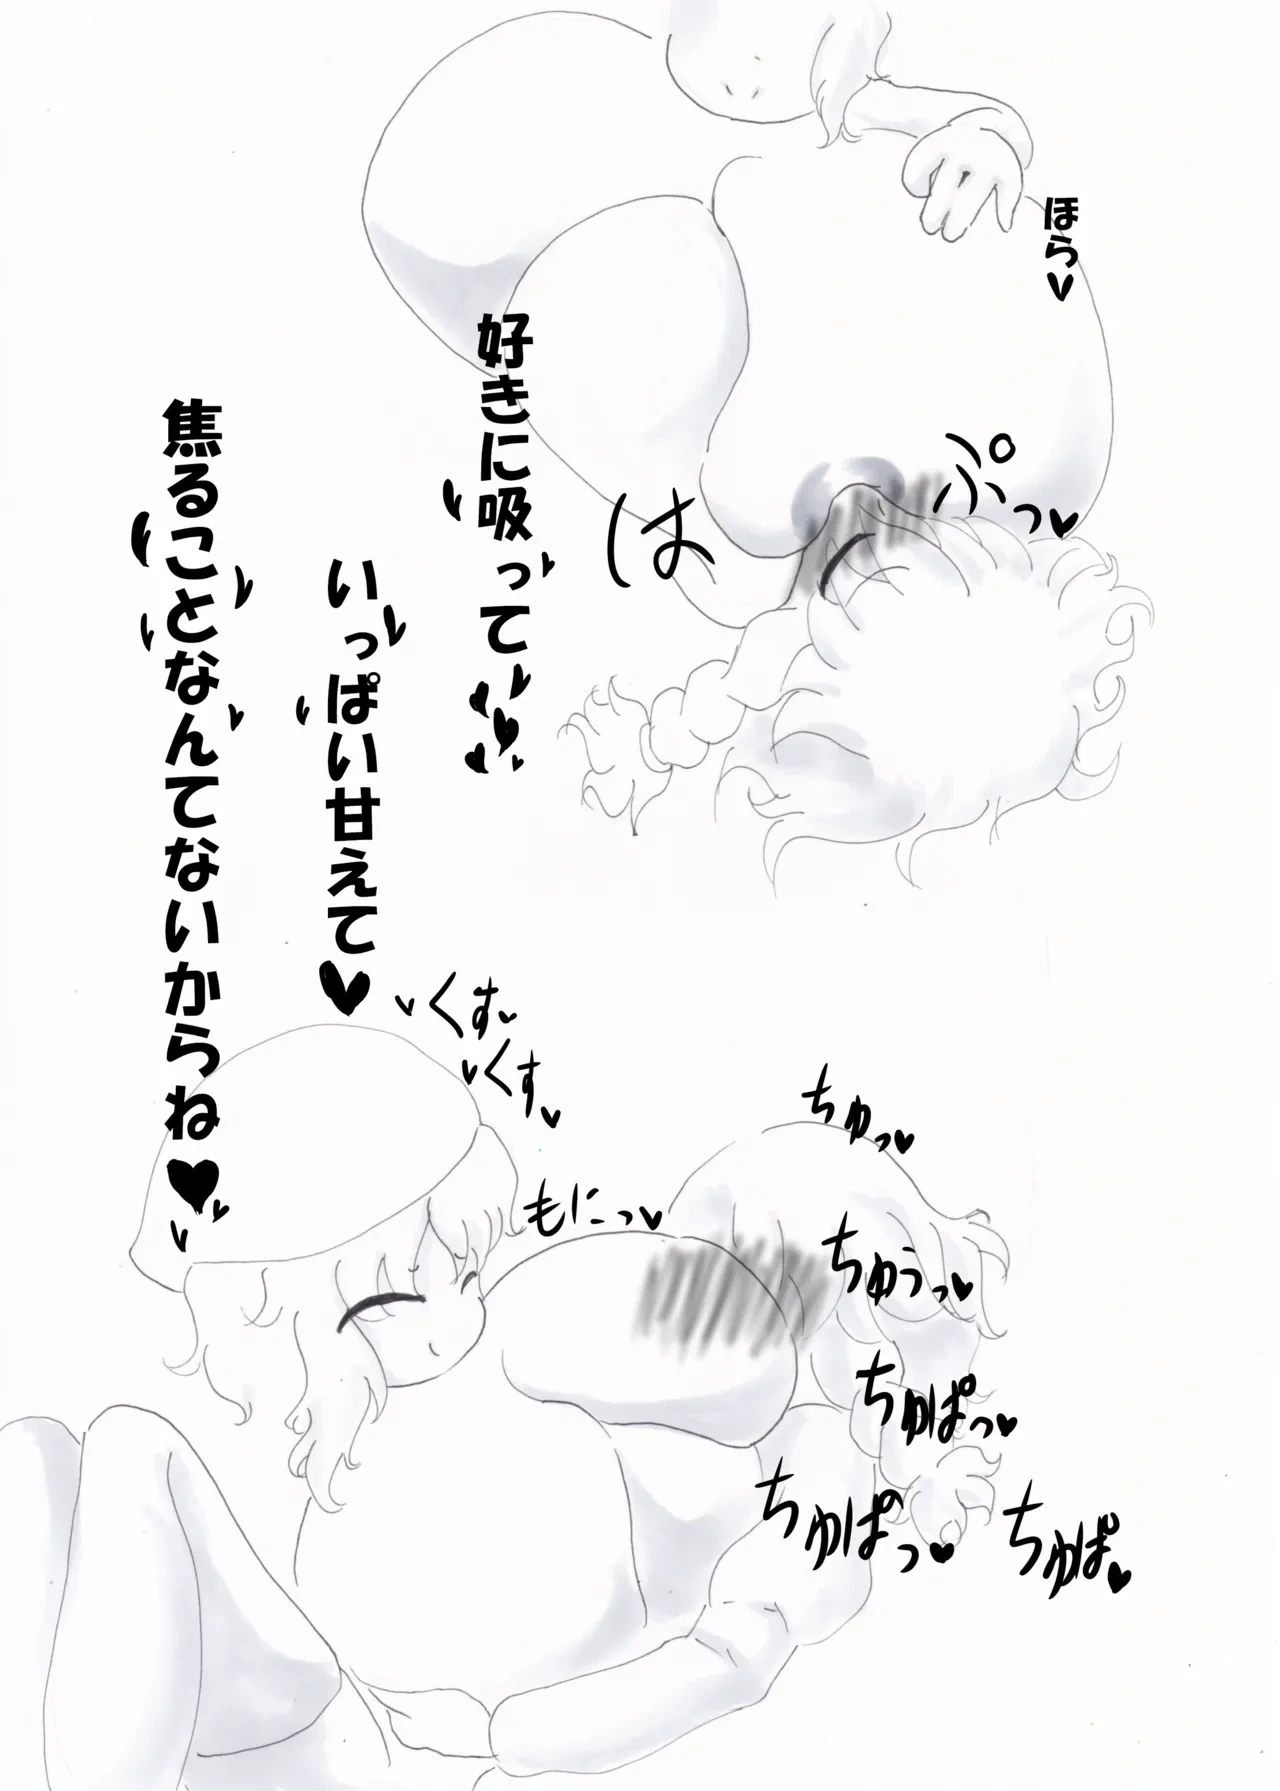 ほら♥
ぷっ♥
は
好きに吸って♥
いっぱい甘えて♥
焦ることなんてないからね♥
くす♥
くす♥
ちゅっ♥
もにっ♥
ちゅうっ♥
ちゅぱっ♥
ちゅぱっ♥
ちゅぱ♥